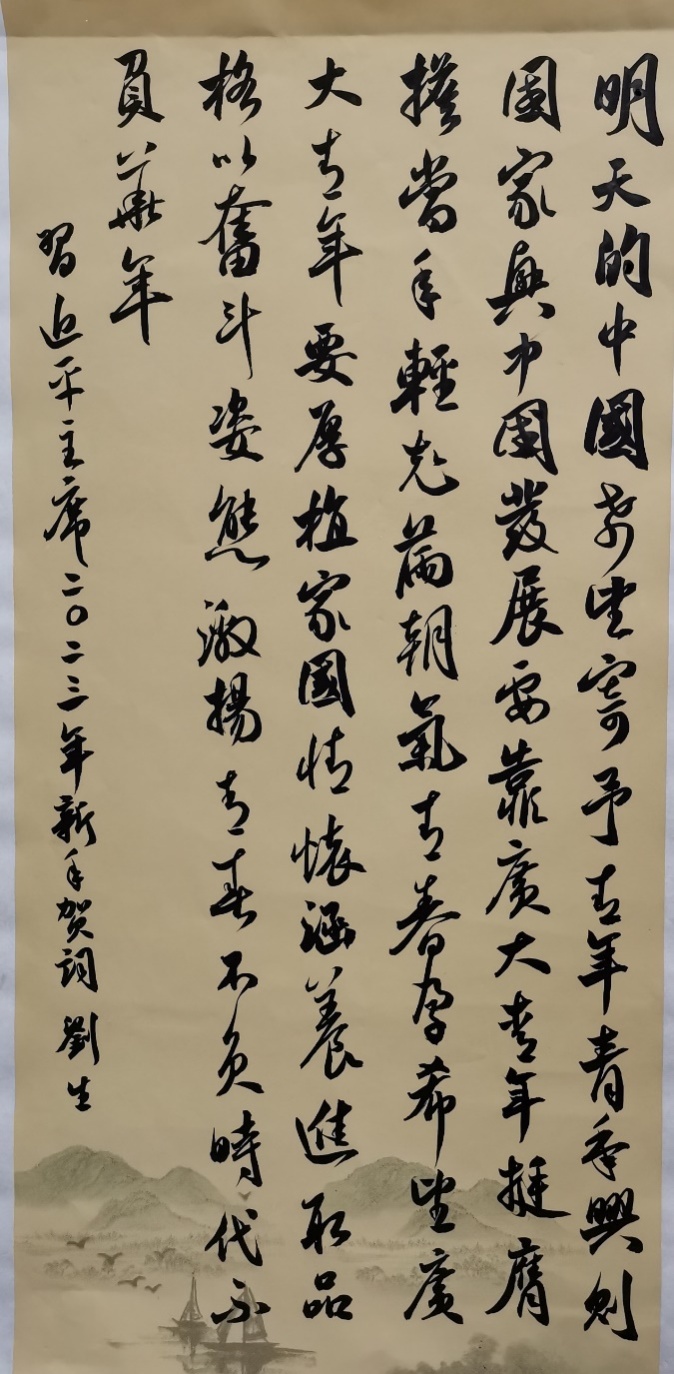 明天的中國希望寄予青年青年興則
國家興中國發展要靠廣大青年挺膺
擔當年輕充滿朝氣青春孕希望廣
大青年要厚植家國情懷涵養進取品
格以奮斗姿態激揚青春不負時代不
負華年
習近平主席二〇二三年新年賀詞 劉生